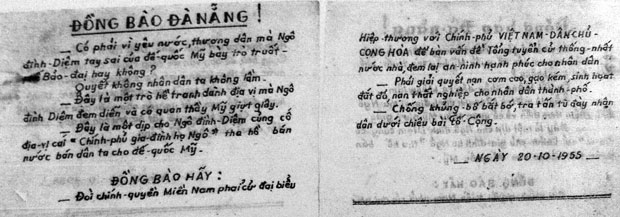 ĐỒNG BÀO ĐÀ NẴNG !
— Có phải vì yêu nước, thương dân mà Ngô
đình-Diệm tay sai của đế-quốc Mỹ bày trò truất-
Bảo-đại hay không ?
Quyết không nhân dân ta không lầm.
— Đây là một trò hề tranh dành địa vị mà Ngô
đình Diệm đem diễn và có quan thầy Mỹ giựt giây.
— Đây là một dịp cho Ngô đình-Diệm củng cố
địa-vị cái "Chính-phủ gia-đình họ Ngô" tha hồ bán
nước bán dân ta cho đế-quốc Mỹ.
ĐỒNG BÀO HÃY :
— Đòi chính-quyền Miền Nam phải cử đại biểu
Hiệp-thương với Chính-phủ VIỆT-NAM-DÂN-CHỦ-
CỘNG HÒA để bàn vấn đề Tổng tuyển cử thống-nhất
nước nhà, đem lại an-ninh hạnh phúc cho nhân dân
— Phải giải quyết nạn cơm cao, gạo kém, sinh hoạt
đắt đỏ, nạn thất nghiệp cho nhân dân thành-phố.
— Chống khủng-bố bắt bớ, tra tấn tù đày nhân
dân dưới chiêu bài Tố-Cộng.
— NGÀY 20-10-1955 —